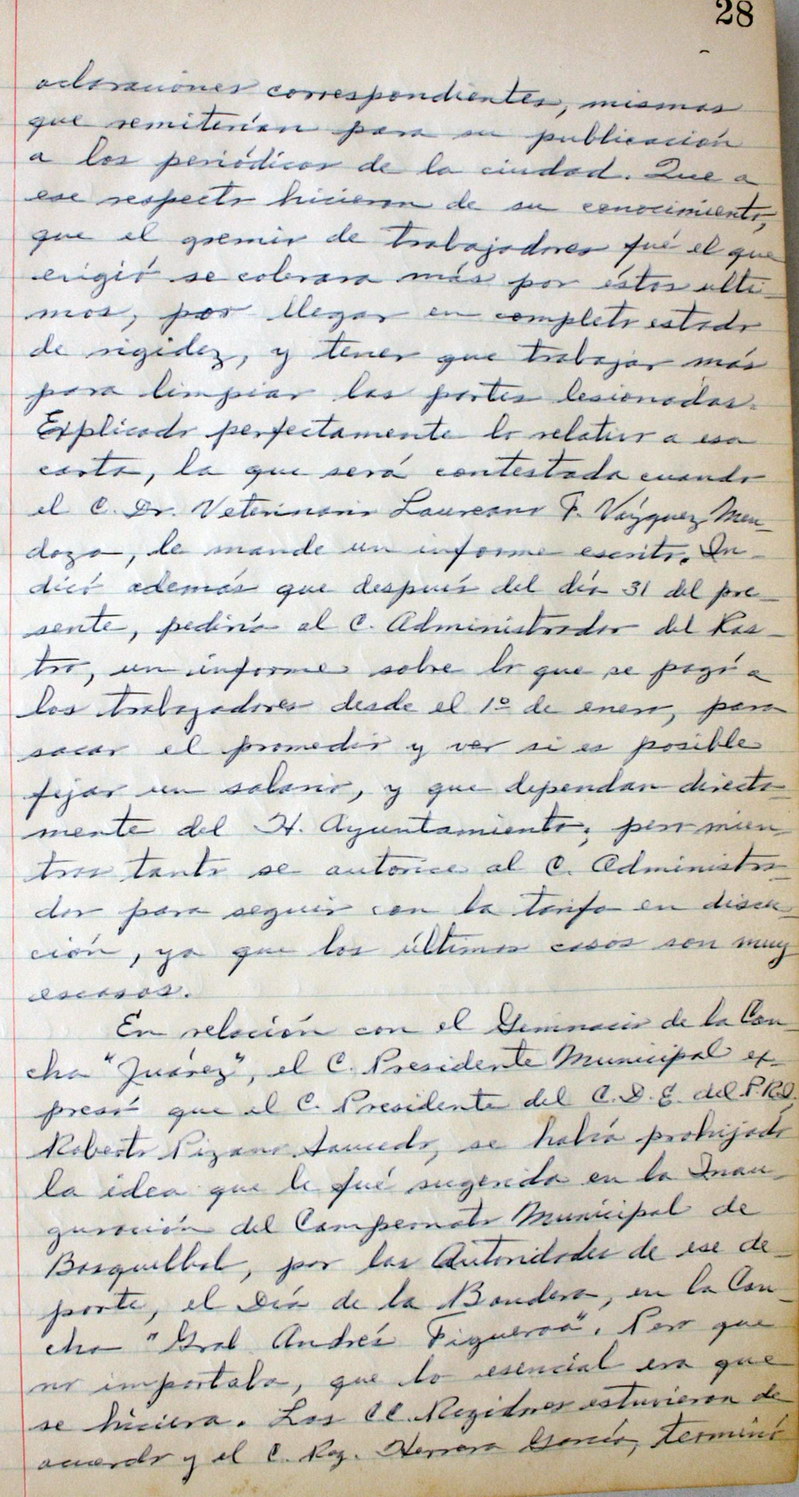 28
aclaraciones correspondientes, mismas
que remitirían para su publicación
a los periódicos de la ciudad. Que a
ese respecto hicieron de su conocimiento,
que el gremio de trabajadores fué el que
exigió se cobrara más por éstos últi-
mos, por llegar en completo estado
de rigidez, y tener que trabajar más
para limpiar las partes lesionadas.
Explicado perfectamente lo relativo a esa
carta, la que será contestada cuando
el C. Dr. Veterinario Laureano F. Vázquez Men-
doza, le mande un informe escrito. In-
dicó además que después del día 31 del pre-
sente, pediría al C. Administrador del Ras-
tro, un informe sobre lo que se pagó a
los trabajadores desde el 1º de enero, para
sacar el promedio y ver si es posible
fijar un salario, y que dependan directa-
mente del H. Ayuntamiento; pero mien-
tras tanto se autorice al C. Administra-
dor para seguir con la tarifa en discu-
ción, ya que los últimos casos son muy
escasos.
En relación con el Gimnacio de la Con-
cha "Juárez", el C. Presidente Municipal ex-
presó que el C. Presidente del C.D.E. del P.R.I.,
Roberto Pizano Saucedo, se había prohijado
la idea que le fué sugerida en la Inau-
guración del Campeonato Municipal de
Basquetbol, por las Autoridades de ese de-
porte, el Día de la Bandera, en la Con-
cha "Gral Andrés Figueroa". Pero que
no importaba, que lo esencial era que
se hiciera. Los CC. Regidores estuvieron de
acuerdo y el C. Reg. Herrera García, terminó